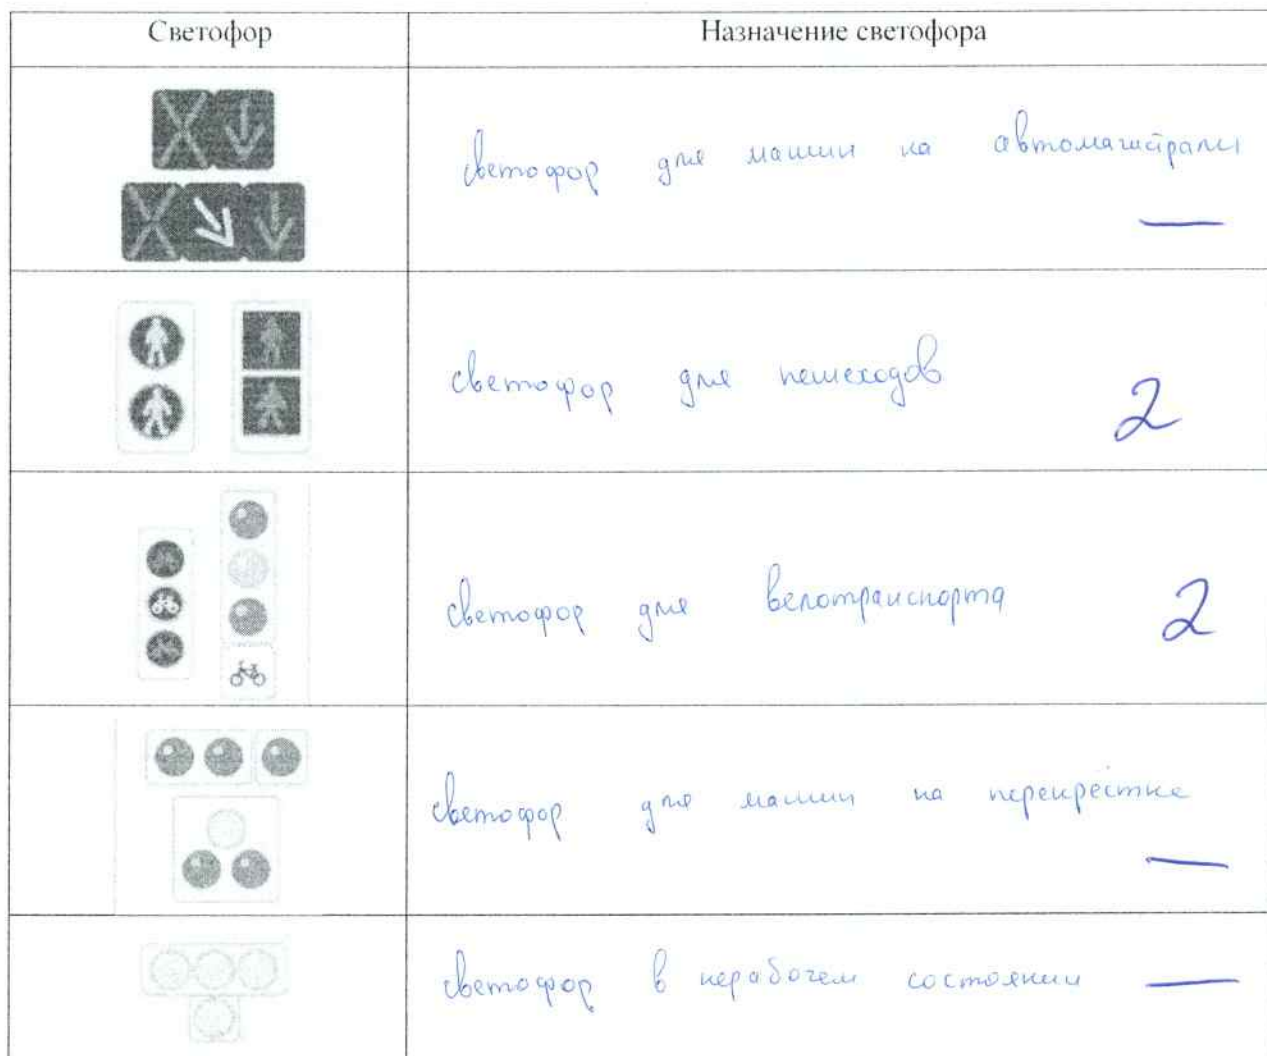 Светофор
Назначение светофора
светофор для машин на автомагистрали
—
светофор для пешеходов
2
светофор для велотранспорта
2
светофор для машин на перекрёстке
—
светофор в нерабочем состоянии —